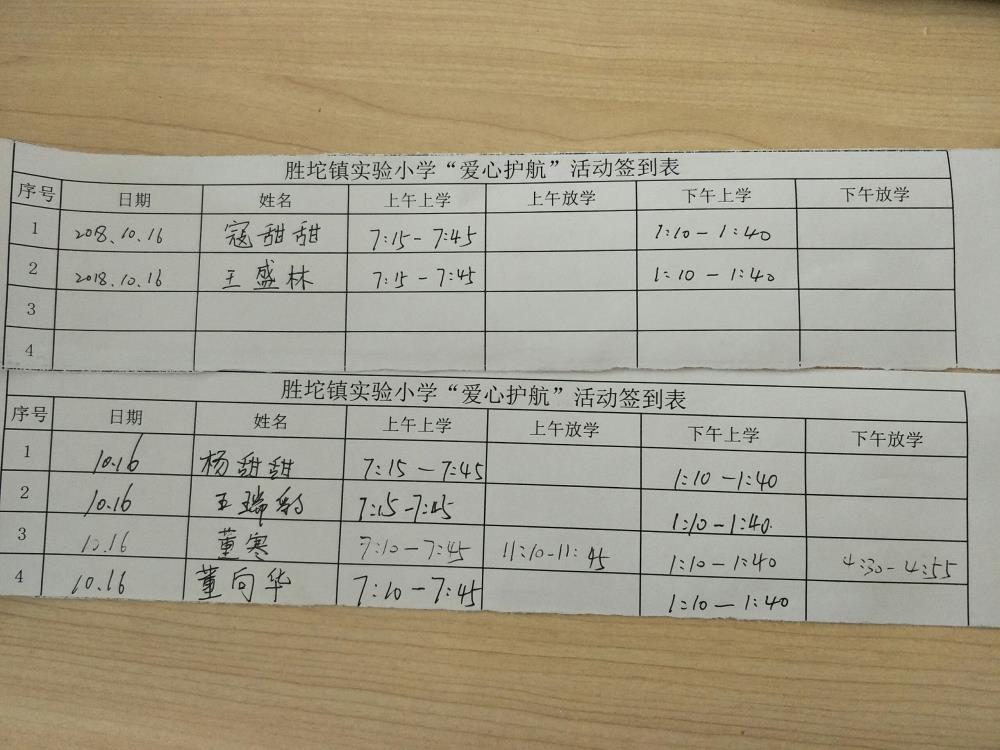 胜坨镇实验小学“爱心护航”活动签到表
序号 日期 姓名 上午上学 上午放学 下午上学 下午放学
1 2018.10.16 寇甜甜 7:15-7:45 1:10-1:40
2 2018.10.16 王盛林 7:15-7:45 1:10-1:40
3
4
胜坨镇实验小学“爱心护航”活动签到表
序号 日期 姓名 上午上学 上午放学 下午上学 下午放学
1 10.16 杨甜甜 7:15-7:45 1:10-1:40
2 10.16 王瑞 7:15-7:45 1:10-1:40
3 10.16 董寒 7:10-7:45 11:10-11:45 1:10-1:40 4:30-4:55
4 10.16 董向华 7:10-7:45 1:10-1:40